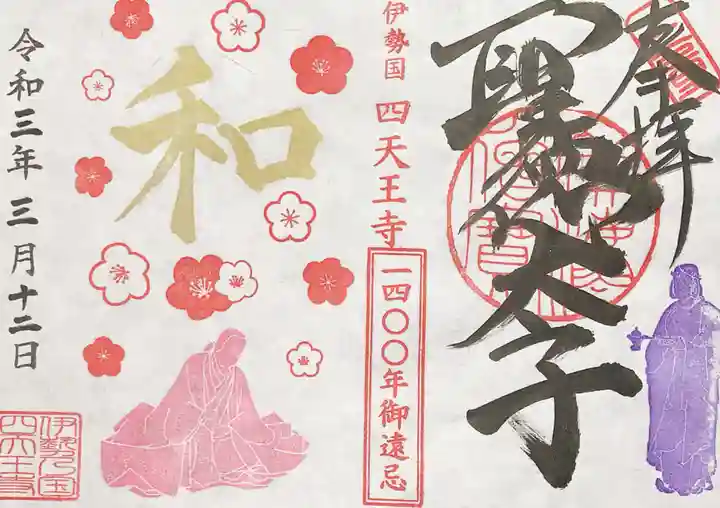 奉拝
聖徳太子
伊勢国 四天王寺
一四〇〇年御遠忌
和
令和三年三月十二日
伊勢乃国
四天王寺